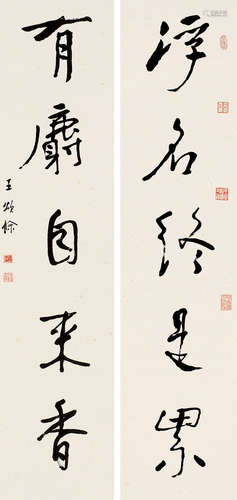 浮名終是累
有麝自來香
王頌餘